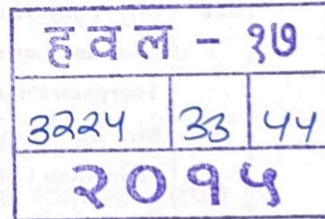 हवल - १७
३२२५ ३३ ५५
२०१५